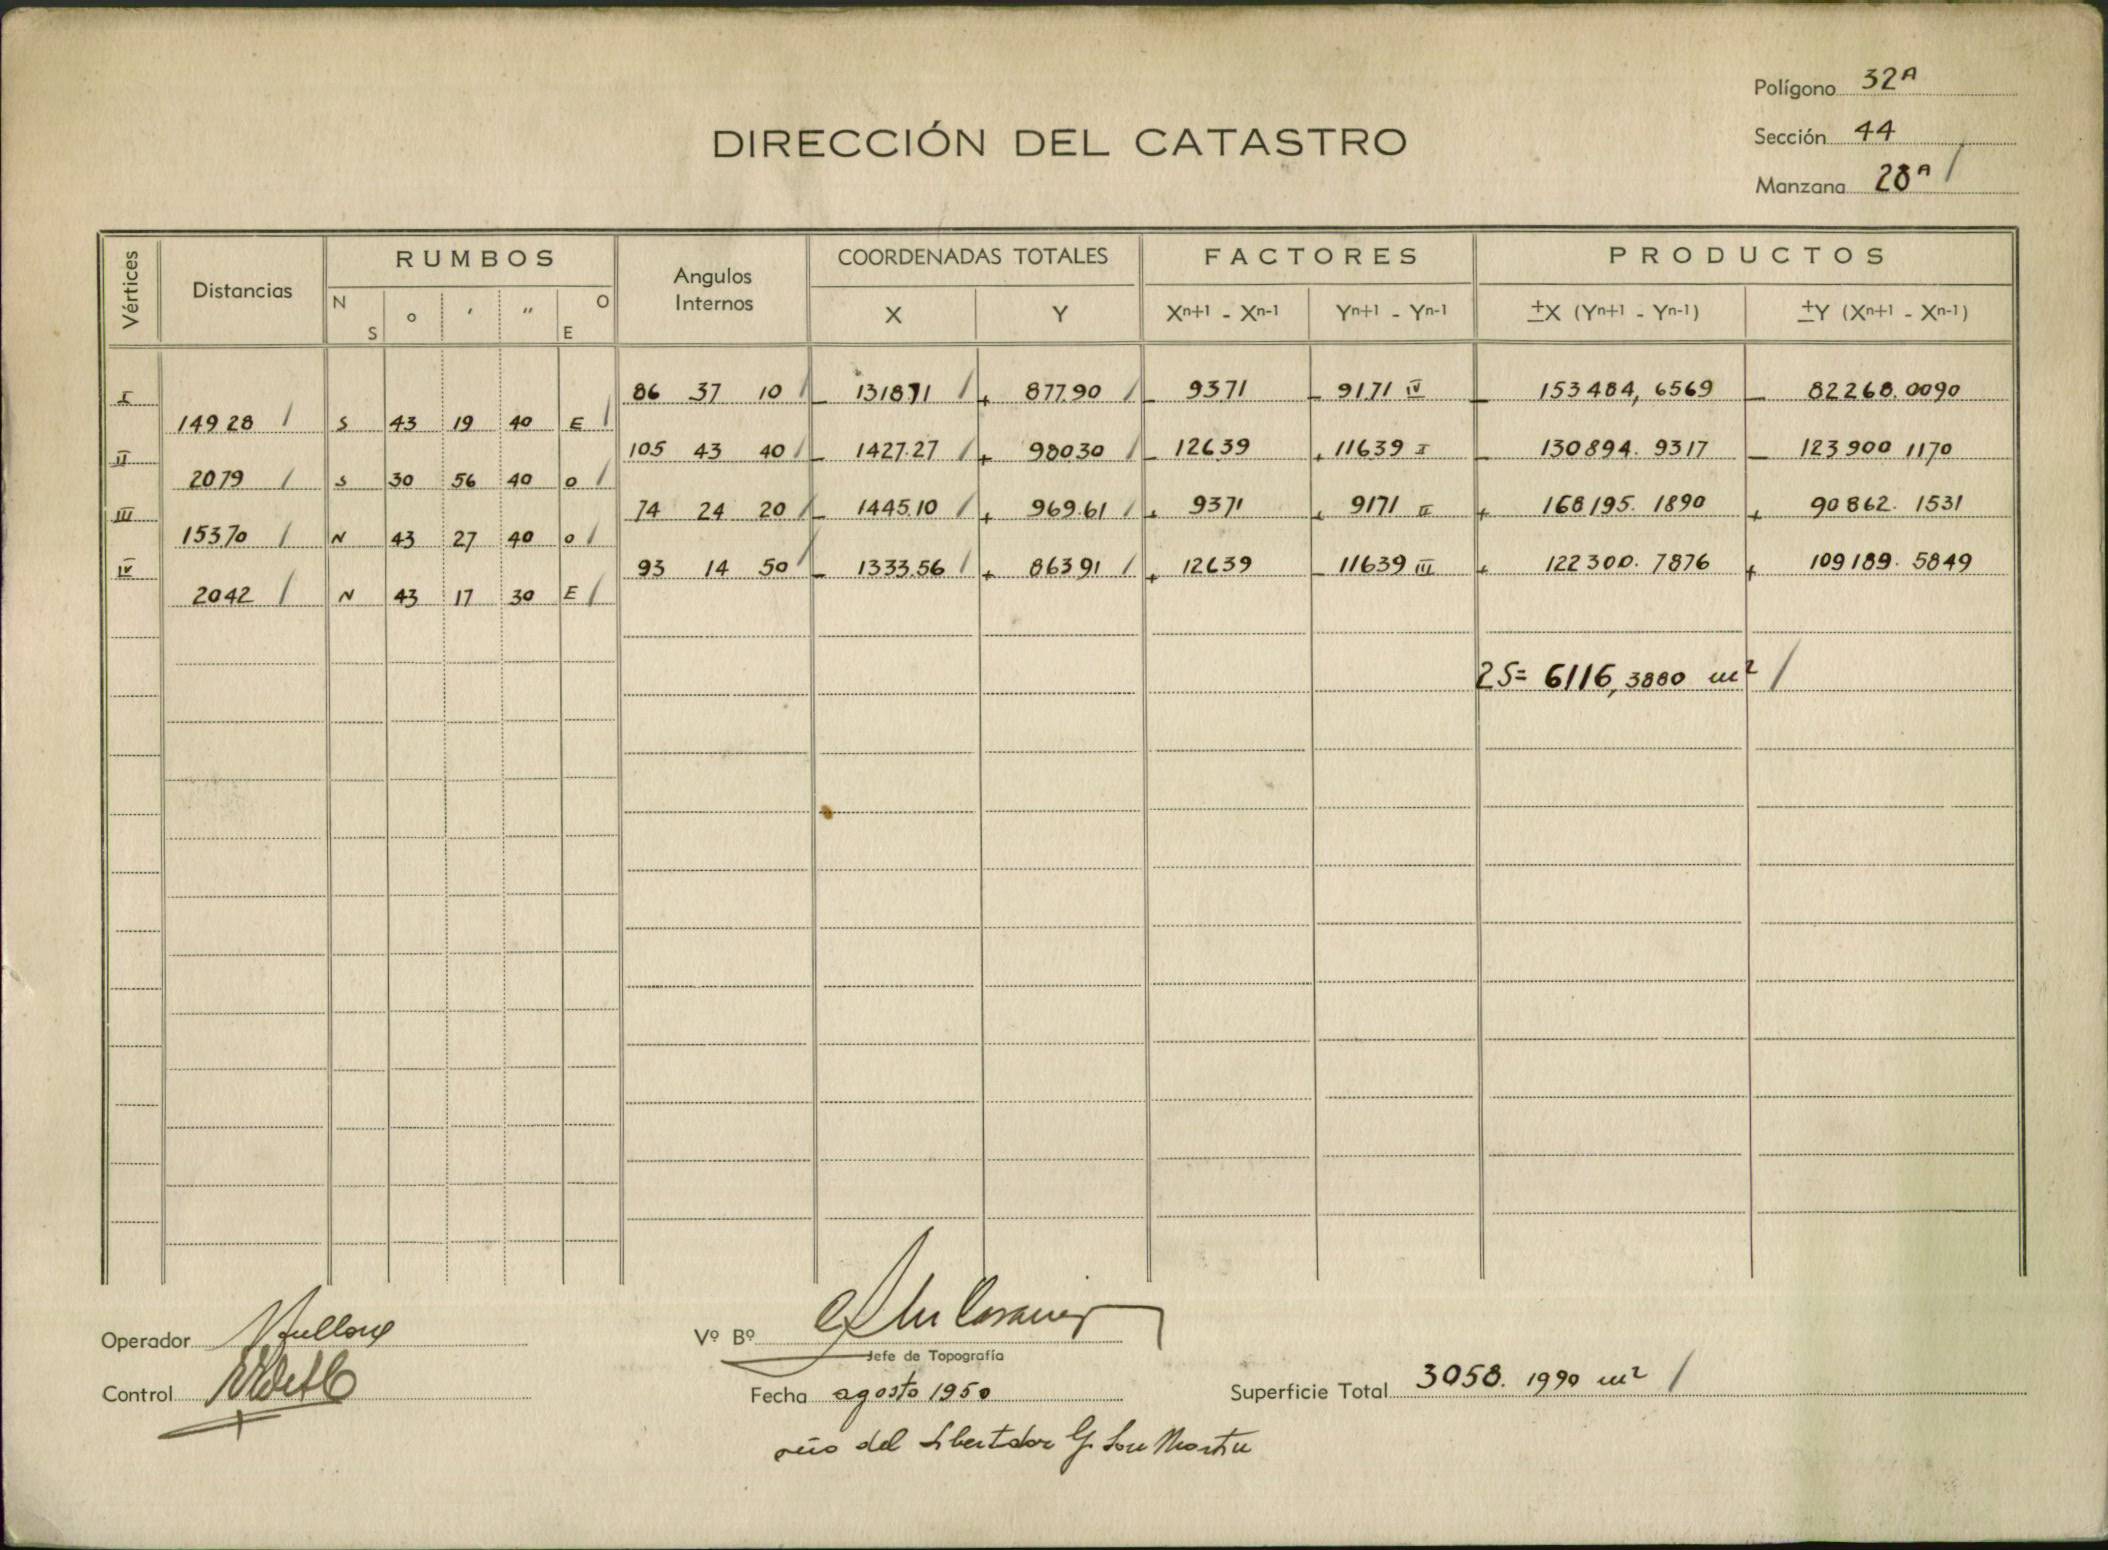 Polígono 32A
Sección 44
Manzana 28A /
DIRECCIÓN DEL CATASTRO
Vértices Distancias RUMBOS Angulos Internos COORDENADAS TOTALES FACTORES PRODUCTOS
N S o ' " O E X Y Xn+1 - Xn-1 Yn+1 - Yn-1 ±X (Yn+1 - Yn-1) ±Y (Xn+1 - Xn-1)
I 86 37 10 / - 1318.71 / + 877.90 / - 9371 - 91.71 IV - 153484, 6569 - 82268.0090
149 28 / S 43 19 40 E /
II 105 43 40 / - 1427.27 / + 98030 / - 12639 + 11639 I - 130894. 9317 - 123900 1170
2079 / S 30 56 40 O /
III 74 24 20 / - 1445.10 / + 969.61 / + 9371 + 9171 II + 168195. 1890 + 90862. 1531
15370 / N 43 27 40 O /
IV 93 14 50 / - 1333.56 / + 86391 / + 12639 - 11639 III + 122300. 7876 + 109189. 5849
2042 / N 43 17 30 E /
2S= 6116,3880 m2 /
Operador
Vº Bº
Jefe de Topografía
Control
Fecha agosto 1950
Superficie Total 3058. 1990 m2 /
año del Libertador G. San Martin